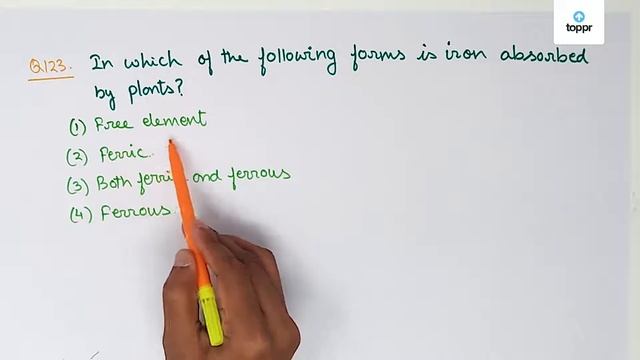 toppr
Q123. In which of the following forms is iron absorbed
by plants?
(1) Free element
(2) Ferric.
(3) Both ferric and ferrous
(4) Ferrous